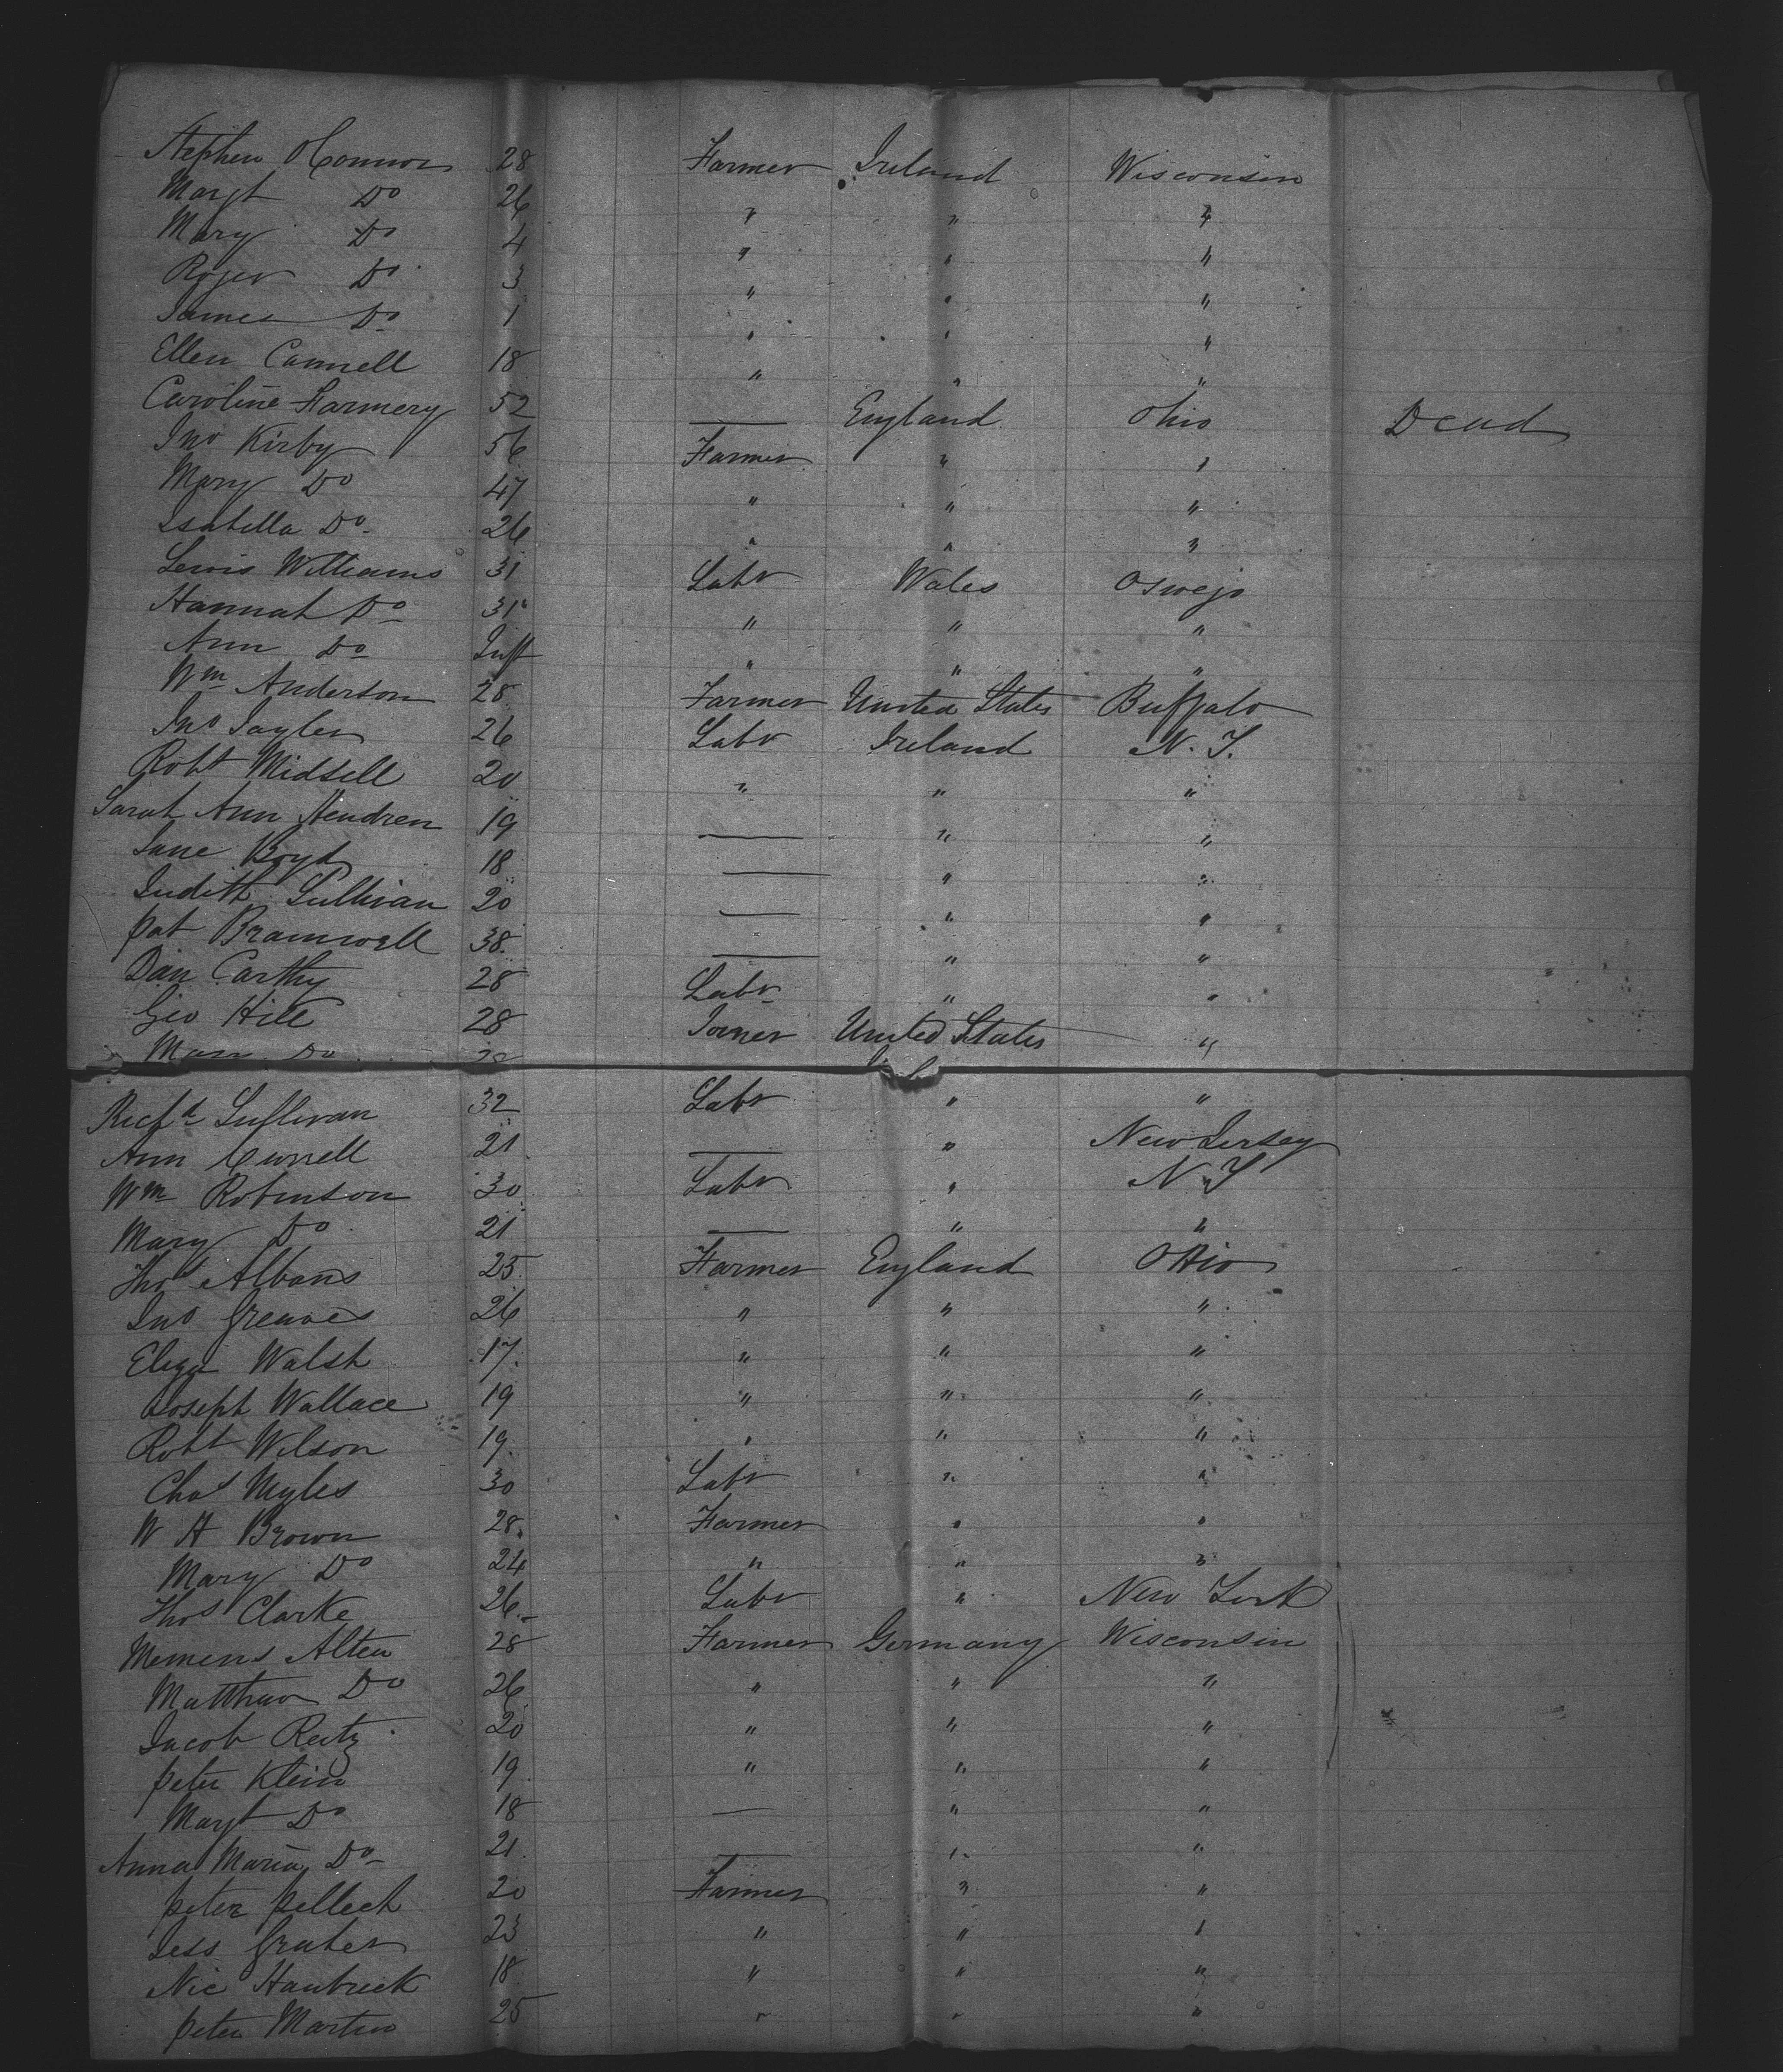 Stephen OConnor 28 Farmer Ireland Wisconsin
Margt Do 26 " " "
Mary Do 4 " " "
Roger Do 3 " " "
James Do 1 " " "
Ellen Connell 18 " " "
Caroline Harmery 52 — England Ohio Dead
Jno Kirby 56 Farmer " "
Mary Do 47 " " "
Isabella Do 26 " " "
Lewis Williams 31 Labr Wales Oswego
Hannah Do 31 " " "
Ann Do Inft " " "
Wm Anderson 28 Farmer United States Buffalo
Jno Sayler 26 Labr Ireland N. Y.
Robt Midsell 20 " " "
Sarah Ann Hendren 19 — " "
Jane Boyd 18 — " "
Judith Sullivan 20 — " "
Pat Bramwell 38 — " "
Dan Carthy 28 Labr " "
Geo Hill 28 Joiner United States "
Mary Do
Richd Sullivan 32 Labr " "
Ann Currell 21 — " New Jersey
Wm Robinson 30 Labr " N Y
Mary Do 21 — " "
Thos Albans 25 Farmer England Ohio
Jno Greaves 26 " " "
Eliza Walsh 17 " " "
Joseph Wallace 19 " " "
Robt Wilson 19 " " "
Chas Myles 30 Labr " "
W H Brown 28 Farmer " "
Mary Do 24 " " "
Thos Clarke 26 Labr " New York
Memens Alten 28 Farmer Germany Wisconsin
Matthew Do 26 " " "
Jacob Reitz 20 " " "
Peter Klein 19 " " "
Margt Do 18 — " "
Anna Maria Do 21 — " "
Peter Pelleck 20 Farmer " "
Jess Graber 23 " " "
Nic Haubrick 18 " " "
Peter Martin 25 " " "